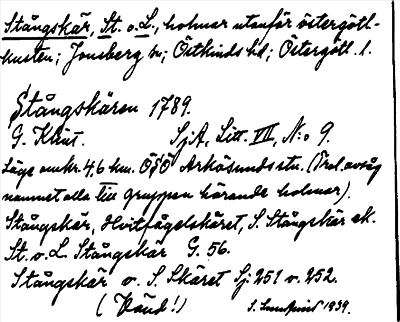 Stångskär, St. o. L., holmar utanför östergötl-
kusten; Jonsberg sn; Östkinds hd; Östergötl. l.
Stångskären 1789.
G. Klint. SjA, Litt. VII, N:o 9.
Läge omkr. 4,6 km. ÖSÖ Arkösunds stn. (Trol. avsåg
namnet alla till gruppen hörande holmar).
Stångskär, Hvitfågelskäret, S. Stångskär ek.
St. o. L. Stångskär G. 56.
Stångskär o. S. Skäret Sj. 251 o. 252.
(Vänd!) S. 1939.